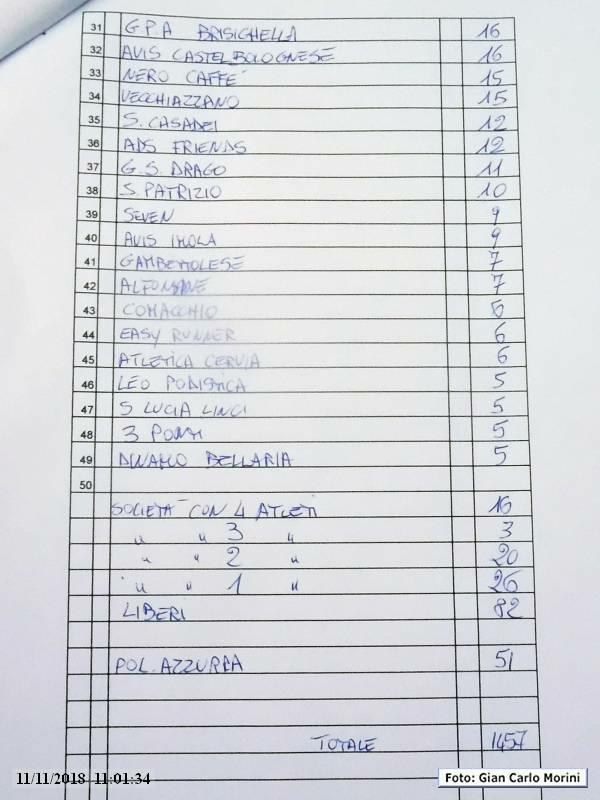 31 G.P.A BRISIGHELLA 16
32 AVIS CASTELBOLOGNESE 16
33 NERO CAFFE' 15
34 VECCHIAZZANO 15
35 S. CASADEI 12
36 ADS FRIENDS 12
37 G.S. DRAGO 11
38 S. PATRIZIO 10
39 SEVEN 9
40 AVIS IMOLA 9
41 GAMBETTOLESE 7
42 ALFONSINE 7
43 COMACCHIO 6
44 EASY RUNNER 6
45 ATLETICA CERVIA 6
46 LEO PODISTICA 5
47 S LUCIA 5
48 3 PONTI 5
49 DINAMO BELLARIA 5
50
SOCIETA' CON 4 ATLETI 16
" " 3 " 3
" " 2 " 20
" " 1 " 26
LIBERI 82
POL. AZZURRA 51
TOTALE 1457
11/11/2018 11:01:34
Foto: Gian Carlo Morini